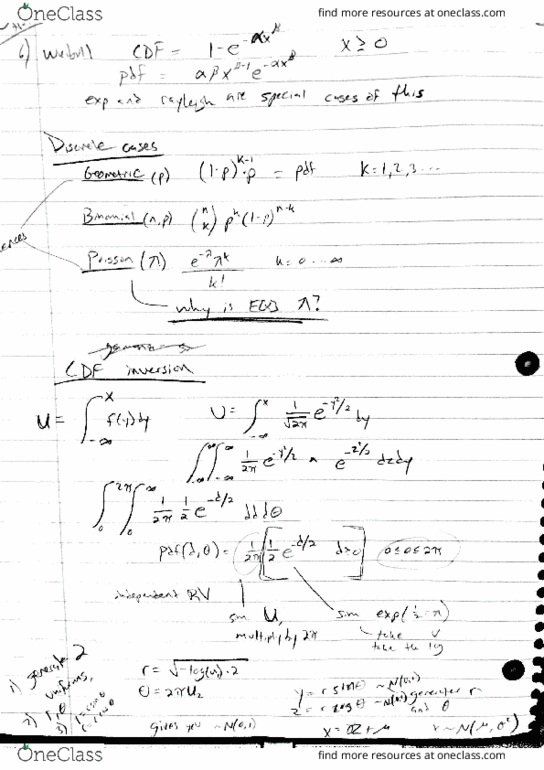 OneClass
find more resources at oneclass.com
6) Weibull CDF = 1-e^{-αx^β} x ≥ 0
pdf = αβx^{β-1}e^{-αx^β}
exp and rayleigh are special cases of this
Discrete cases
Geometric (p) (1-p)^{k-1}·p = pdf k=1,2,3...
Binomial (n,p) (n k) p^k(1-p)^{n-k}
ences
Poisson (λ) e^{-λ}λ^k / k! k=0...∞
why is E[X] λ?
CDF inversion
U = ∫_{-∞}^{x} f(y)dy U = ∫_{-∞}^{x} 1/√2π e^{-y²/2} dy
∫_{-∞}^{∞}∫_{-∞}^{∞} 1/2π e^{-y²/2} × e^{-z²/2} dzdy
∫_0^{2π}∫_0^{∞} 1/2π 1/2 e^{-d/2} dd dθ
pdf(d,θ) = 1/2π [1/2 e^{-d/2} d>0] 0≤θ≤2π
independent RV
sim U, sim exp(
multiply by 2π take U
take the log
1) generate 2
uniforms,
2) r, θ
3)
r = √-log(u)·2
θ = 2πU₂
gives you ~N(0,1)
y = r sinθ ~N(0,1)
z = r cosθ ~N(0,1) generate r
and θ
x = σz+μ ~N(μ,σ²)
OneClass
find more resources at oneclass.com